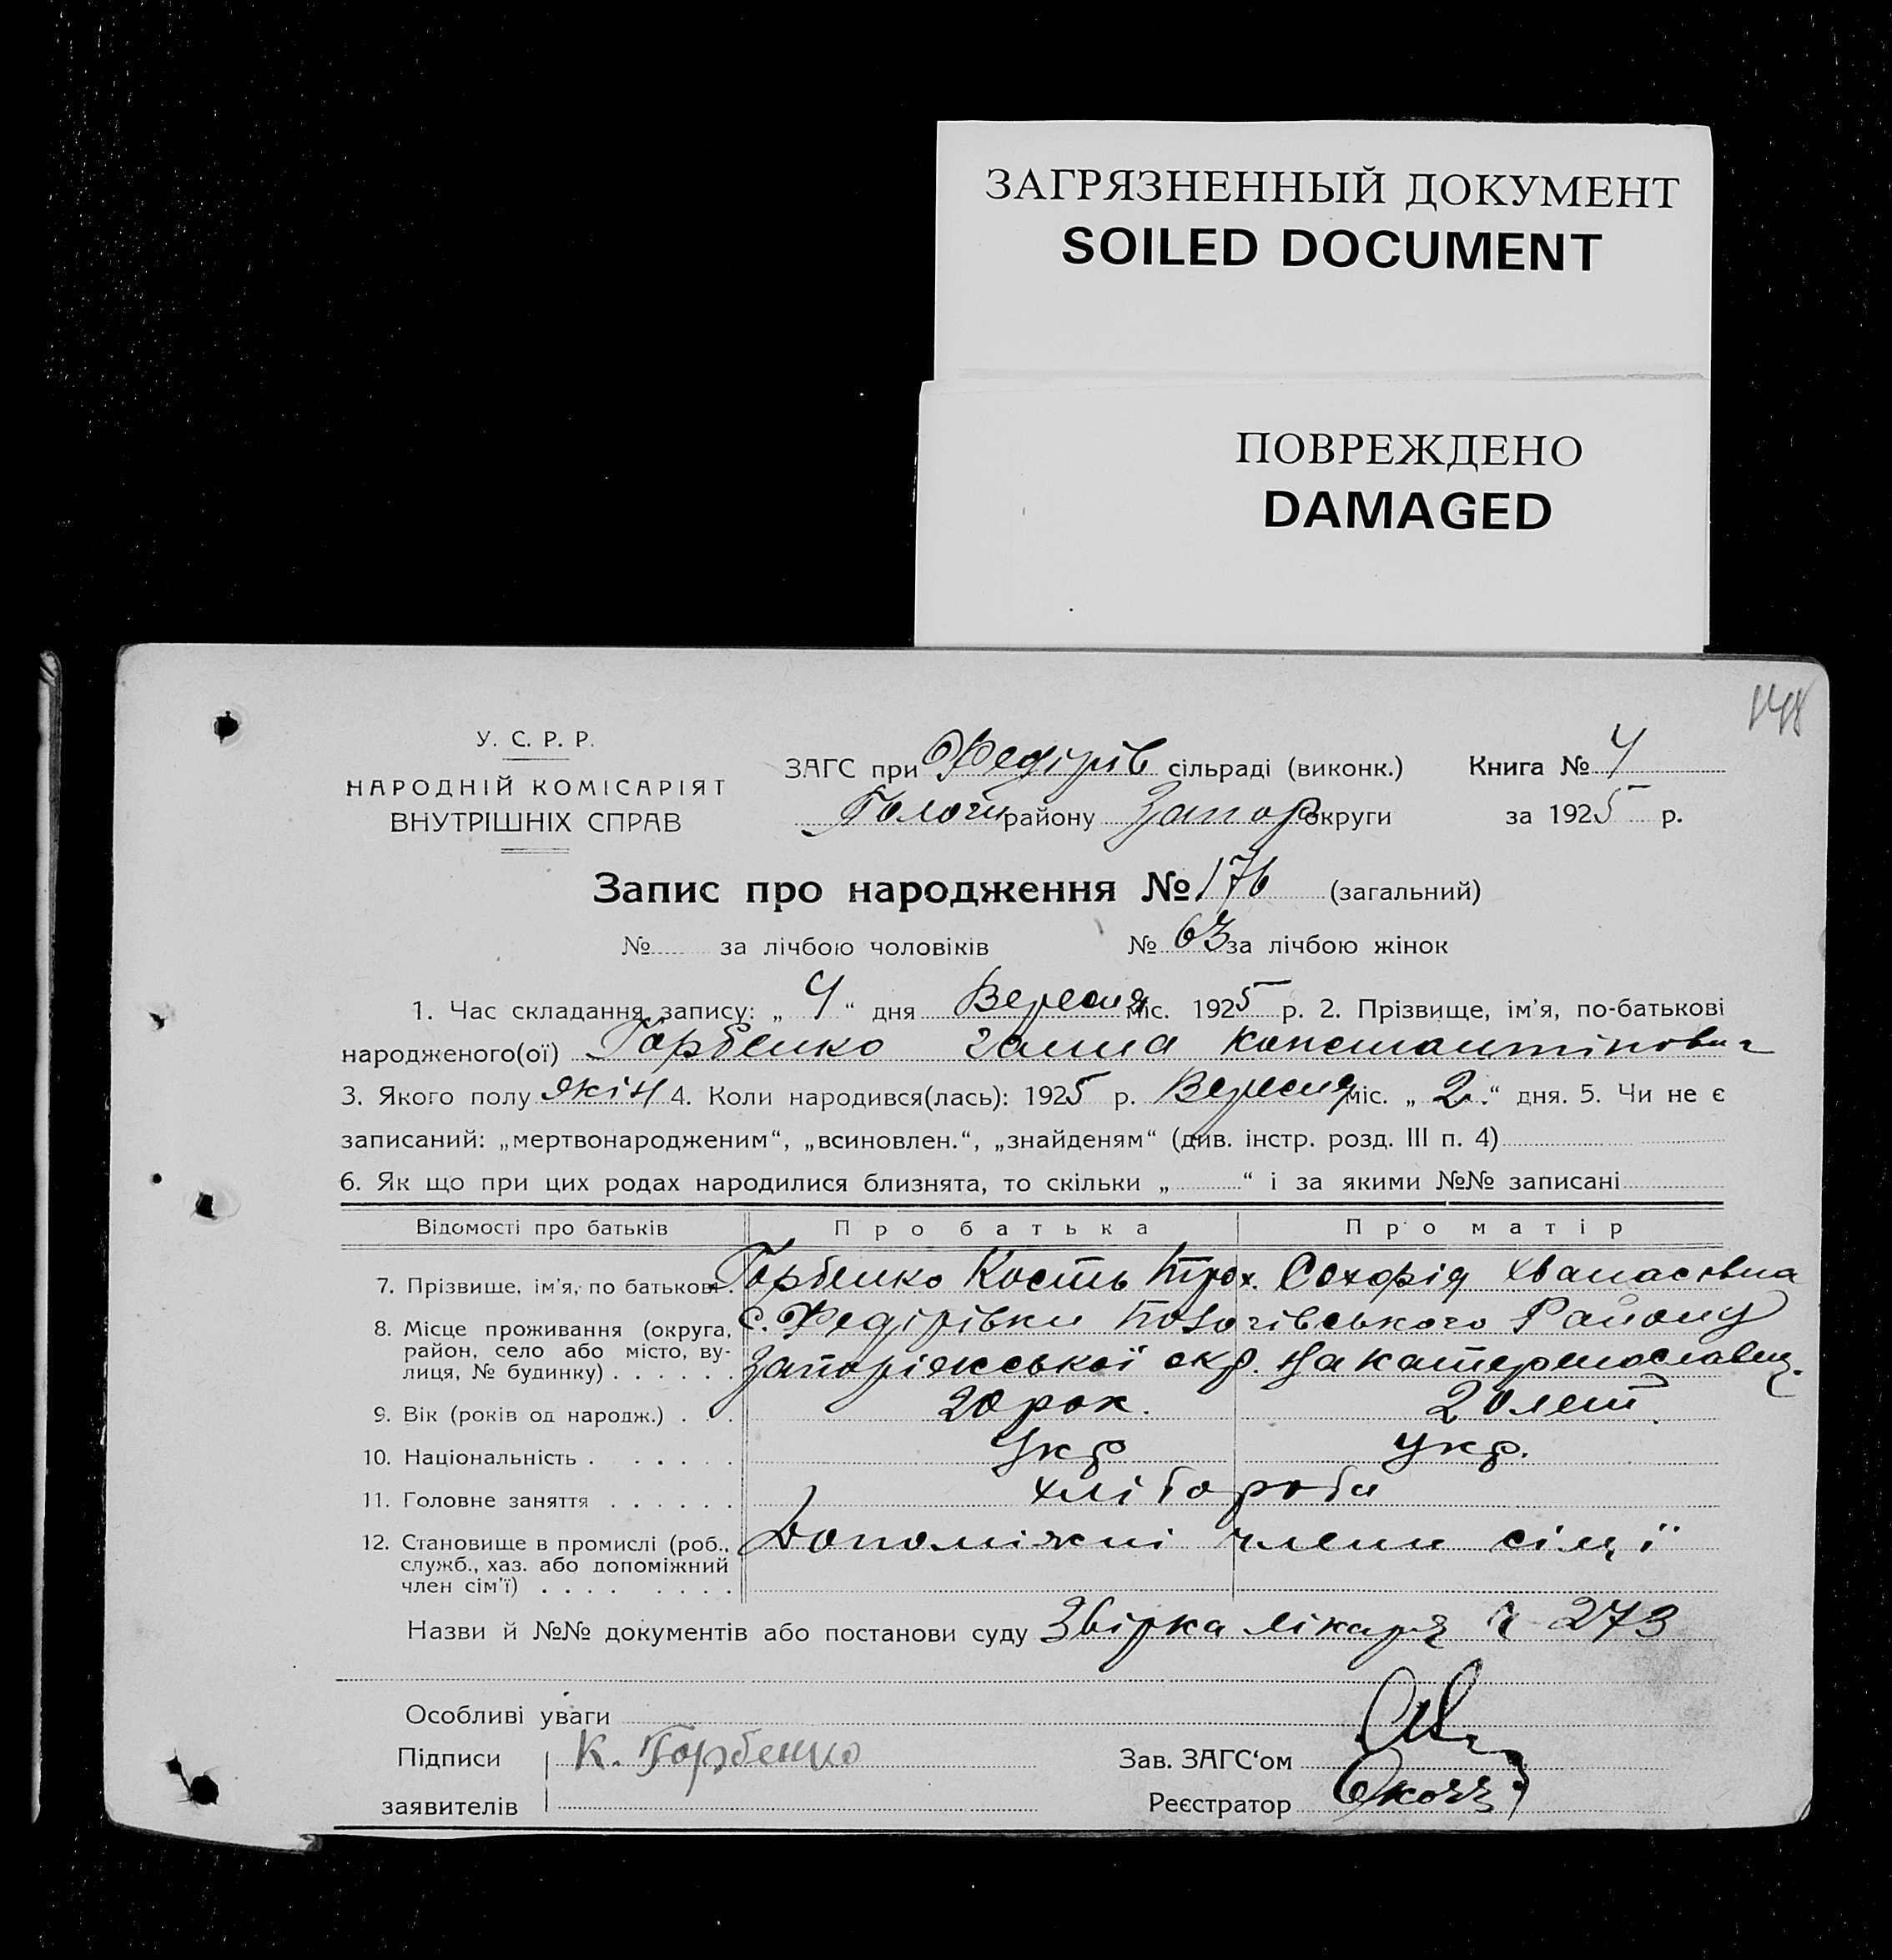 ЗАГРЯЗНЕННЫЙ ДОКУМЕНТ
SOILED DOCUMENT
ПОВРЕЖДЕНО
DAMAGED
148
У. С. Р. Р.
НАРОДНІЙ КОМІСАРІЯТ
ВНУТРІШНІХ СПРАВ
ЗАГС при Федірів сільраді (виконк.) Книга № 4
району Запор округи за 1925 р.
Запис про народження № 176 (загальний)
№ за лічбою чоловіків № 63 за лічбою жінок
1. Час складання запису: „ 4 “ дня Вересня міс. 1925 р. 2. Прізвище, ім'я, по-батькові
народженого(ої) Горбенко Галина
3. Якого полу 4. Коли народився(лась): 1925 р. Вересня міс. „ 2 “ дня. 5. Чи не є
записаний: „мертвонародженим“, „всиновлен.“, „знайденям“ (див. інстр. розд. III п. 4)
6. Як що при цих родах народилися близнята, то скільки „ “ і за якими №№ записані
Відомості про батьків Про батька Про матір
7. Прізвище, ім'я, по батькові. Горбенко Кость Трох.
8. Місце проживання (округа, с. Федірівки Району
район, село або місто, ву-
лиця, № будинку) . . . . . . Запоріжської окр. на
9. Вік (років од народж.) . . . 20 рок. 20 лет.
10. Національність . . . . . . Укр Укр.
11. Головне заняття . . . . . . хлібороби
12. Становище в промислі (роб., Допоміжні члени сімї
служб., хаз. або допоміжний
член сім'ї) . . . . . . . .
Назви й №№ документів або постанови суду Звірка лікаря 273
Особливі уваги
Підписи К. Горбенко Зав. ЗАГС‘ом
заявителів Реєстратор